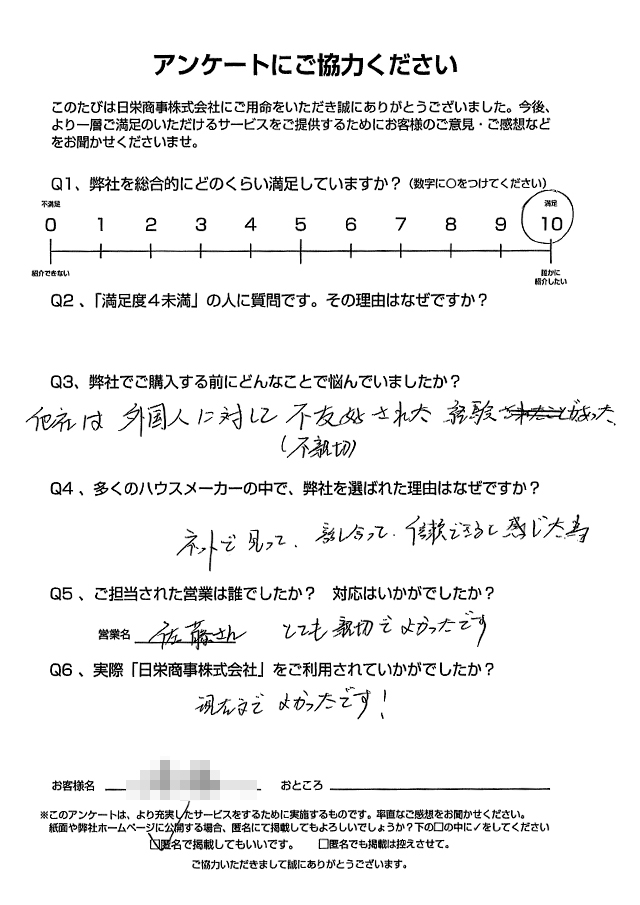 アンケートにご協力ください
このたびは日栄商事株式会社にご用命をいただき誠にありがとうございました。今後、
より一層ご満足のいただけるサービスをご提供するためにお客様のご意見・ご感想など
をお聞かせくださいませ。
Q1、弊社を総合的にどのくらい満足していますか？（数字に○をつけてください）
不満足 満足
0 1 2 3 4 5 6 7 8 9 10
紹介できない 誰かに
紹介したい
Q2、「満足度４未満」の人に質問です。その理由はなぜですか？
Q3、弊社でご購入する前にどんなことで悩んでいましたか？
他社は 外国人に対して 不友好された 経験されたことがあった
（不親切）
Q4、多くのハウスメーカーの中で、弊社を選ばれた理由はなぜですか？
ネットで見って、話し合って、信頼できると感じた為
Q5、ご担当された営業は誰でしたか？ 対応はいかがでしたか？
営業名 佐藤さん とても親切でよかったです
Q6、実際「日栄商事株式会社」をご利用されていかがでしたか？
現在まで よかったです！
お客様名 おところ
※このアンケートは、より充実したサービスをするために実施するものです。率直なご感想をお聞かせください。
紙面や弊社ホームページに公開する場合、匿名にて掲載してもよろしいでしょうか？下の□の中に✓をしてください
□匿名で掲載してもいいです。 □匿名でも掲載は控えさせて。
ご協力いただきまして誠にありがとうございます。